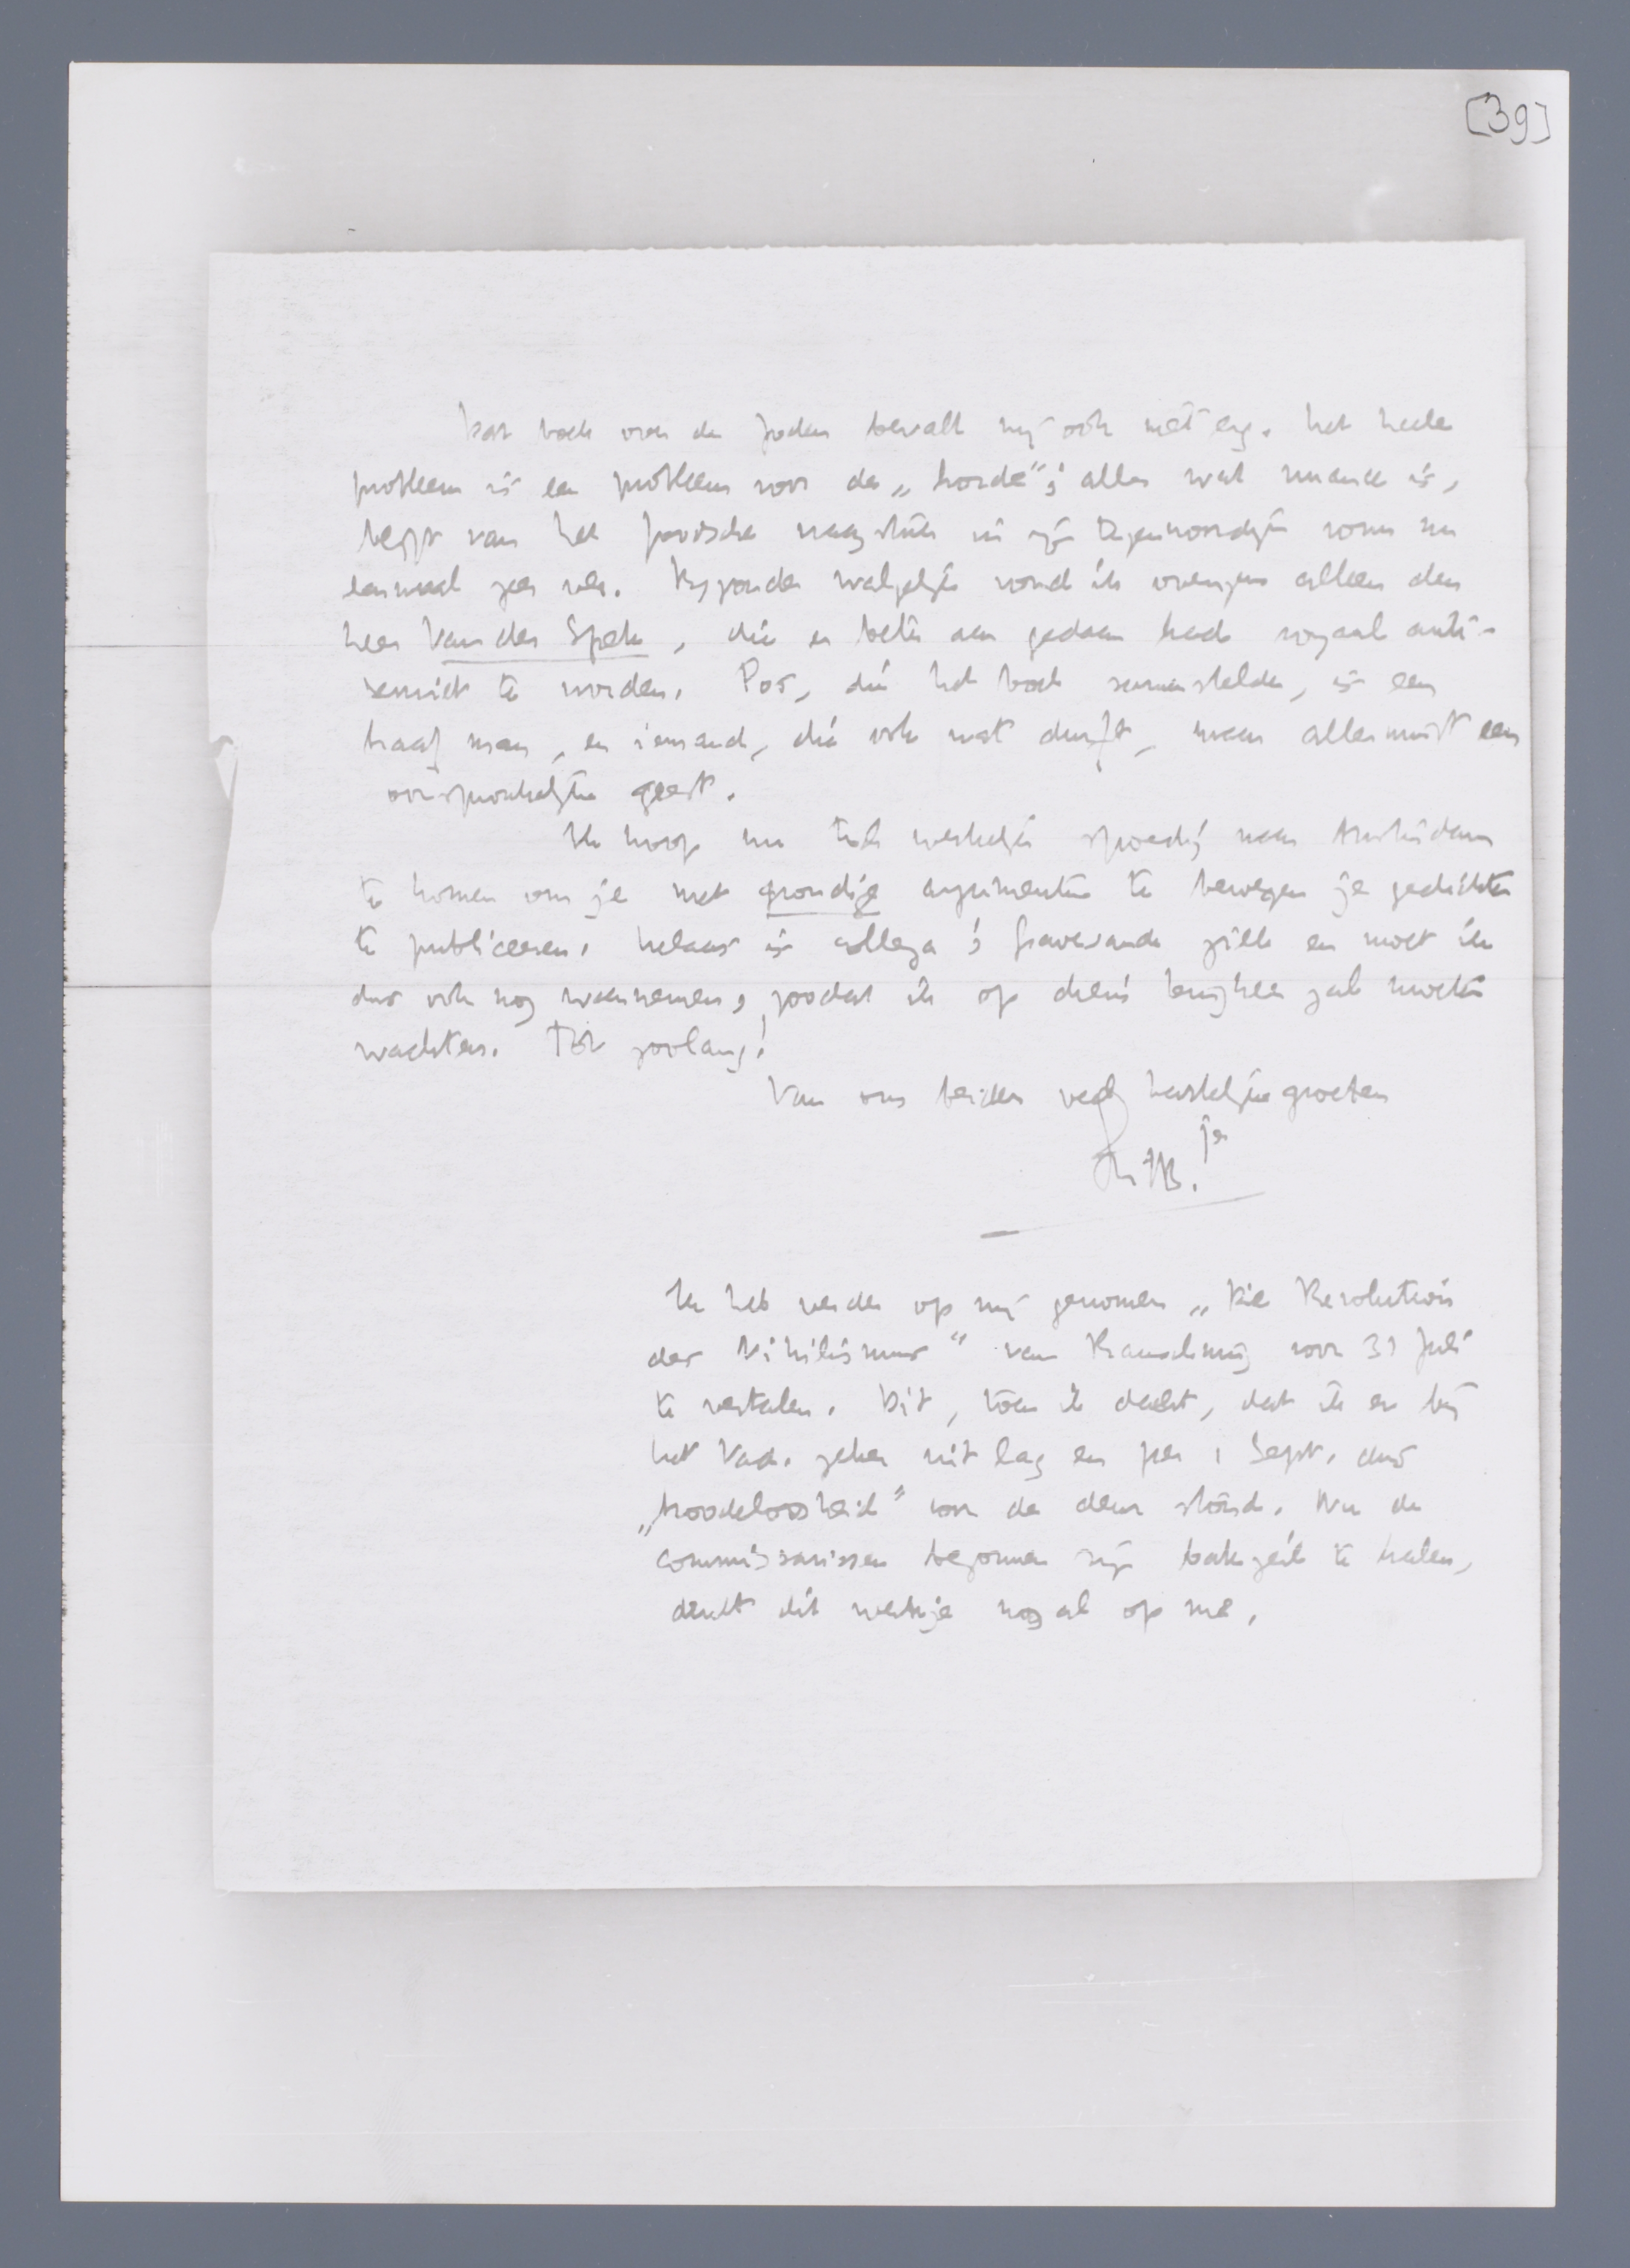 [39]
Dat boek over de Joden bevalt mij ook niet erg. Het heele
probleem is een probleem voor de „horde"; alles wat nuance is,
heeft van het Joodsche vraagstuk in zijn tegenwoordigen vorm nu
eenmaal zeer veel. Bijzonder walgelijk vond ik overigens alleen den
heer Van der Spek, die er beter aan gedaan had royaal anti-
semiet te worden. Pos, die het boek samenstelde, is een
braaf man, en iemand, die ook wat durft, maar allerminst een
oorspronkelijke geest.
Ik hoop nu toch werkelijk spoedig naar Amsterdam
te komen om je met grondige argumenten te bewegen je gedichten
te publiceeren. Helaas is collega 's Gravesande ziek en moet ik
dus ook nog waarnemen, zoodat ik op diens terugkeer zal moeten
wachten. Tot zoolang!
Van ons beiden veel hartelijke groeten
je
MtB.
Ik heb verder op mij genomen „Die Revolution
des Nihilismus" van Rauschning voor 31 Juli
te vertalen. Dit, toen ik dacht, dat ik er bij
het Vad. zeker uit lag en per 1 Sept. dus
„broodeloosheid" voor de deur stond. Nu de
commissarissen begonnen zijn bakzeil te halen,
drukt dit werkje nogal op me.